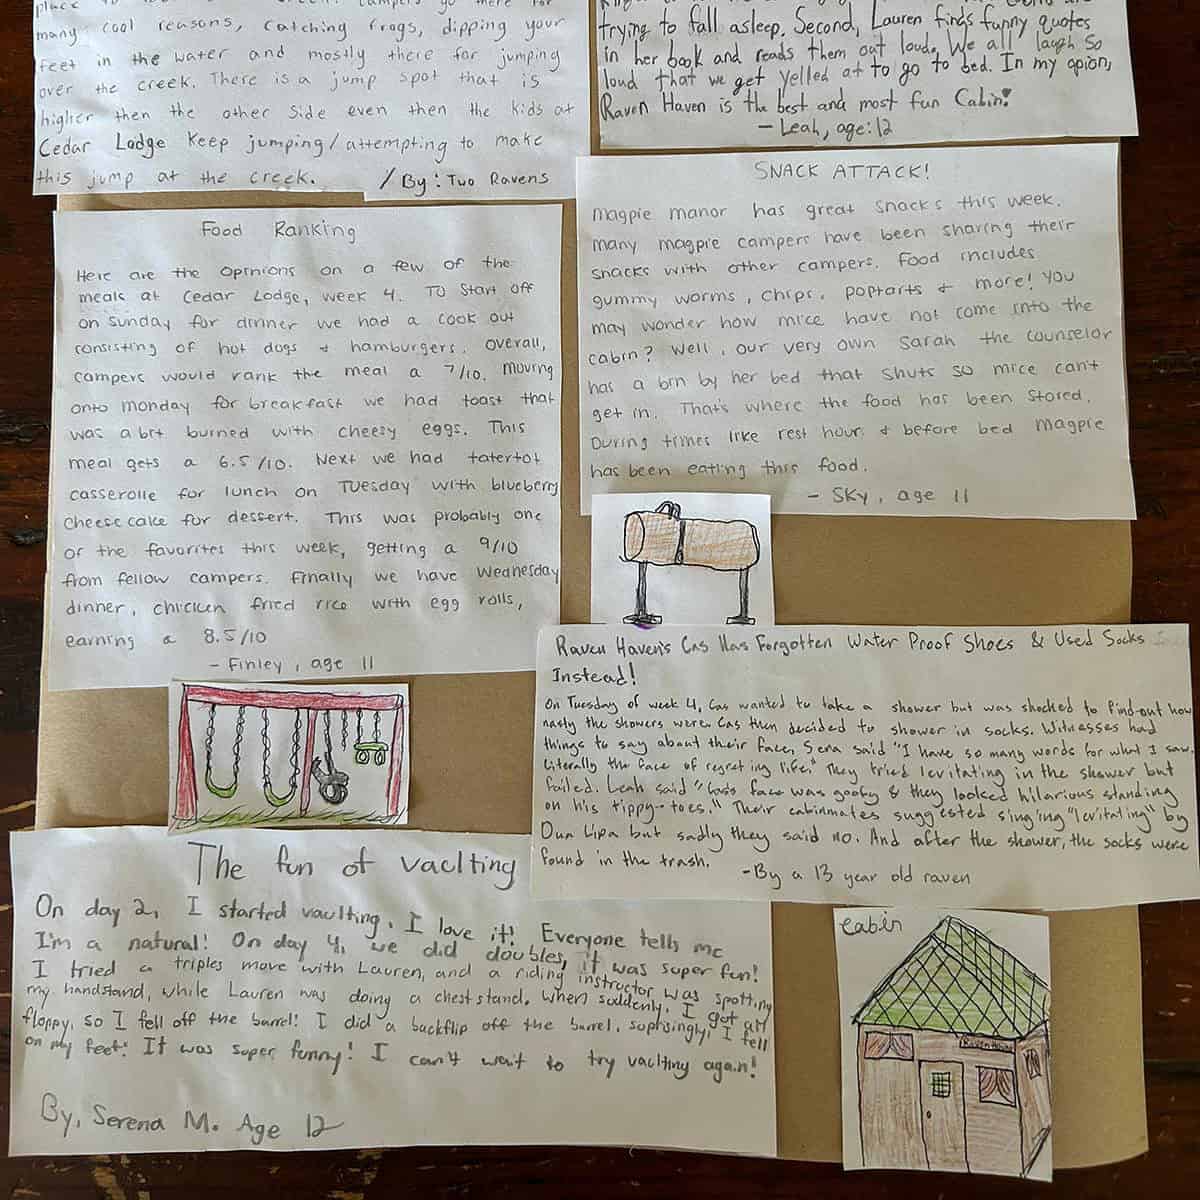 place
many cool reasons, catching frogs, dipping your
feet in the water and mostly there for jumping
over the creek. There is a jump spot that is
higher then the other side even then the kids at
Cedar Lodge keep jumping/attempting to make
this jump at the creek. / By: Two Ravens
trying to fall asleep. Second, Lauren finds funny quotes
in her book and reads them out loud. We all laugh so
loud that we get yelled at to go to bed. In my opion,
Raven Haven is the best and most fun Cabin!
- Leah, age: 12
SNACK ATTACK!
Magpie manor has great snacks this week.
many magpie campers have been sharing their
snacks with other campers. Food includes
gummy worms, chips, poptarts & more! You
may wonder how mice have not come into the
cabin? Well, our very own Sarah the counselor
has a bin by her bed that shuts so mice can't
get in. That's where the food has been stored.
During times like rest hour & before bed magpie
has been eating this food.
- Sky, age 11
Food Ranking
Here are the opinions on a few of the
meals at Cedar Lodge, week 4. To start off
on Sunday for dinner we had a cook out
consisting of hot dogs & hamburgers. Overall,
campers would rank the meal a 7/10. Moving
onto monday for breakfast we had toast that
was a bit burned with cheesy eggs. This
meal gets a 6.5/10. Next we had tatertot
casserolle for lunch on Tuesday with blueberry
cheesecake for dessert. This was probably one
of the favorites this week, getting a 9/10
from fellow campers. Finally we have Wednesday
dinner, chicken fried rice with egg rolls,
earning a 8.5/10
- Finley, age 11
Raven Haven's Cas Has Forgotten Water Proof Shoes & Used Socks
Instead!
On Tuesday of week 4, Cas wanted to take a shower but was shocked to find-out how
nasty the showers were. Cas then decided to shower in socks. Witnesses had
things to say about their face, Sera said "I have so many words for what I saw,
literally the face of regreting life." They tried levitating in the shower but
failed. Leah said "Cas's face was goofy & they looked hilarious standing
on his tippy-toes." Their cabinmates suggested singing "levitating" by
Dua Lipa but sadly they said no. And after the shower, the socks were
found in the trash.
-By a 13 year old raven
The fun of vaclting
On day 2, I started vaulting. I love it! Everyone tells me
I'm a natural! On day 4, we did doubles, it was super fun!
I tried a triples move with Lauren, and a riding instructor was spotting
my handstand, while Lauren was doing a cheststand. When suddenly, I got all
floppy, so I fell off the barrel! I did a backflip off the barrel, suprisingly, I fell
on my feet! It was super funny! I can't wait to try vaclting again!
By, Serena M. Age 12
cabin
Raven Haven